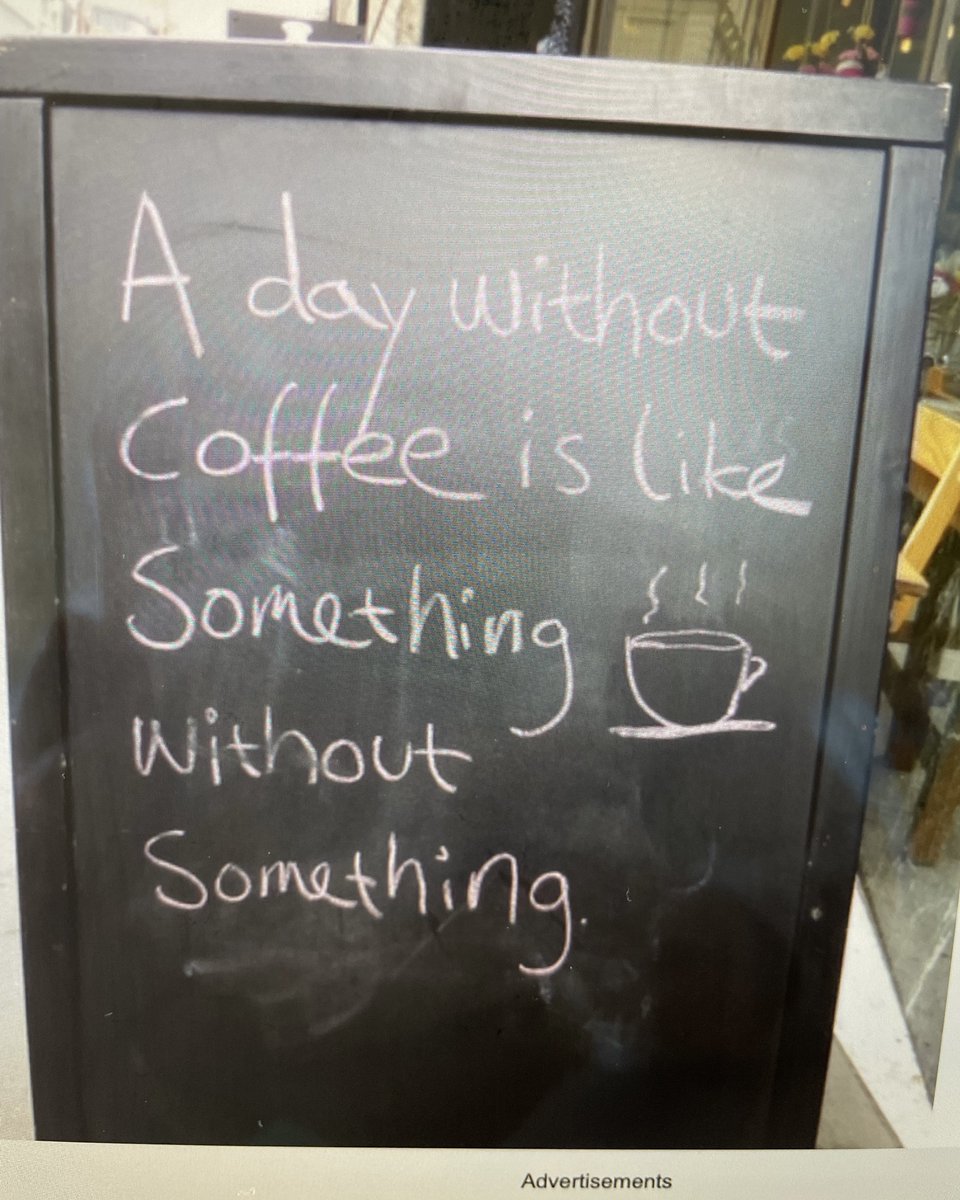 A day without
Coffee is like
Something
without
Something.
Advertisements